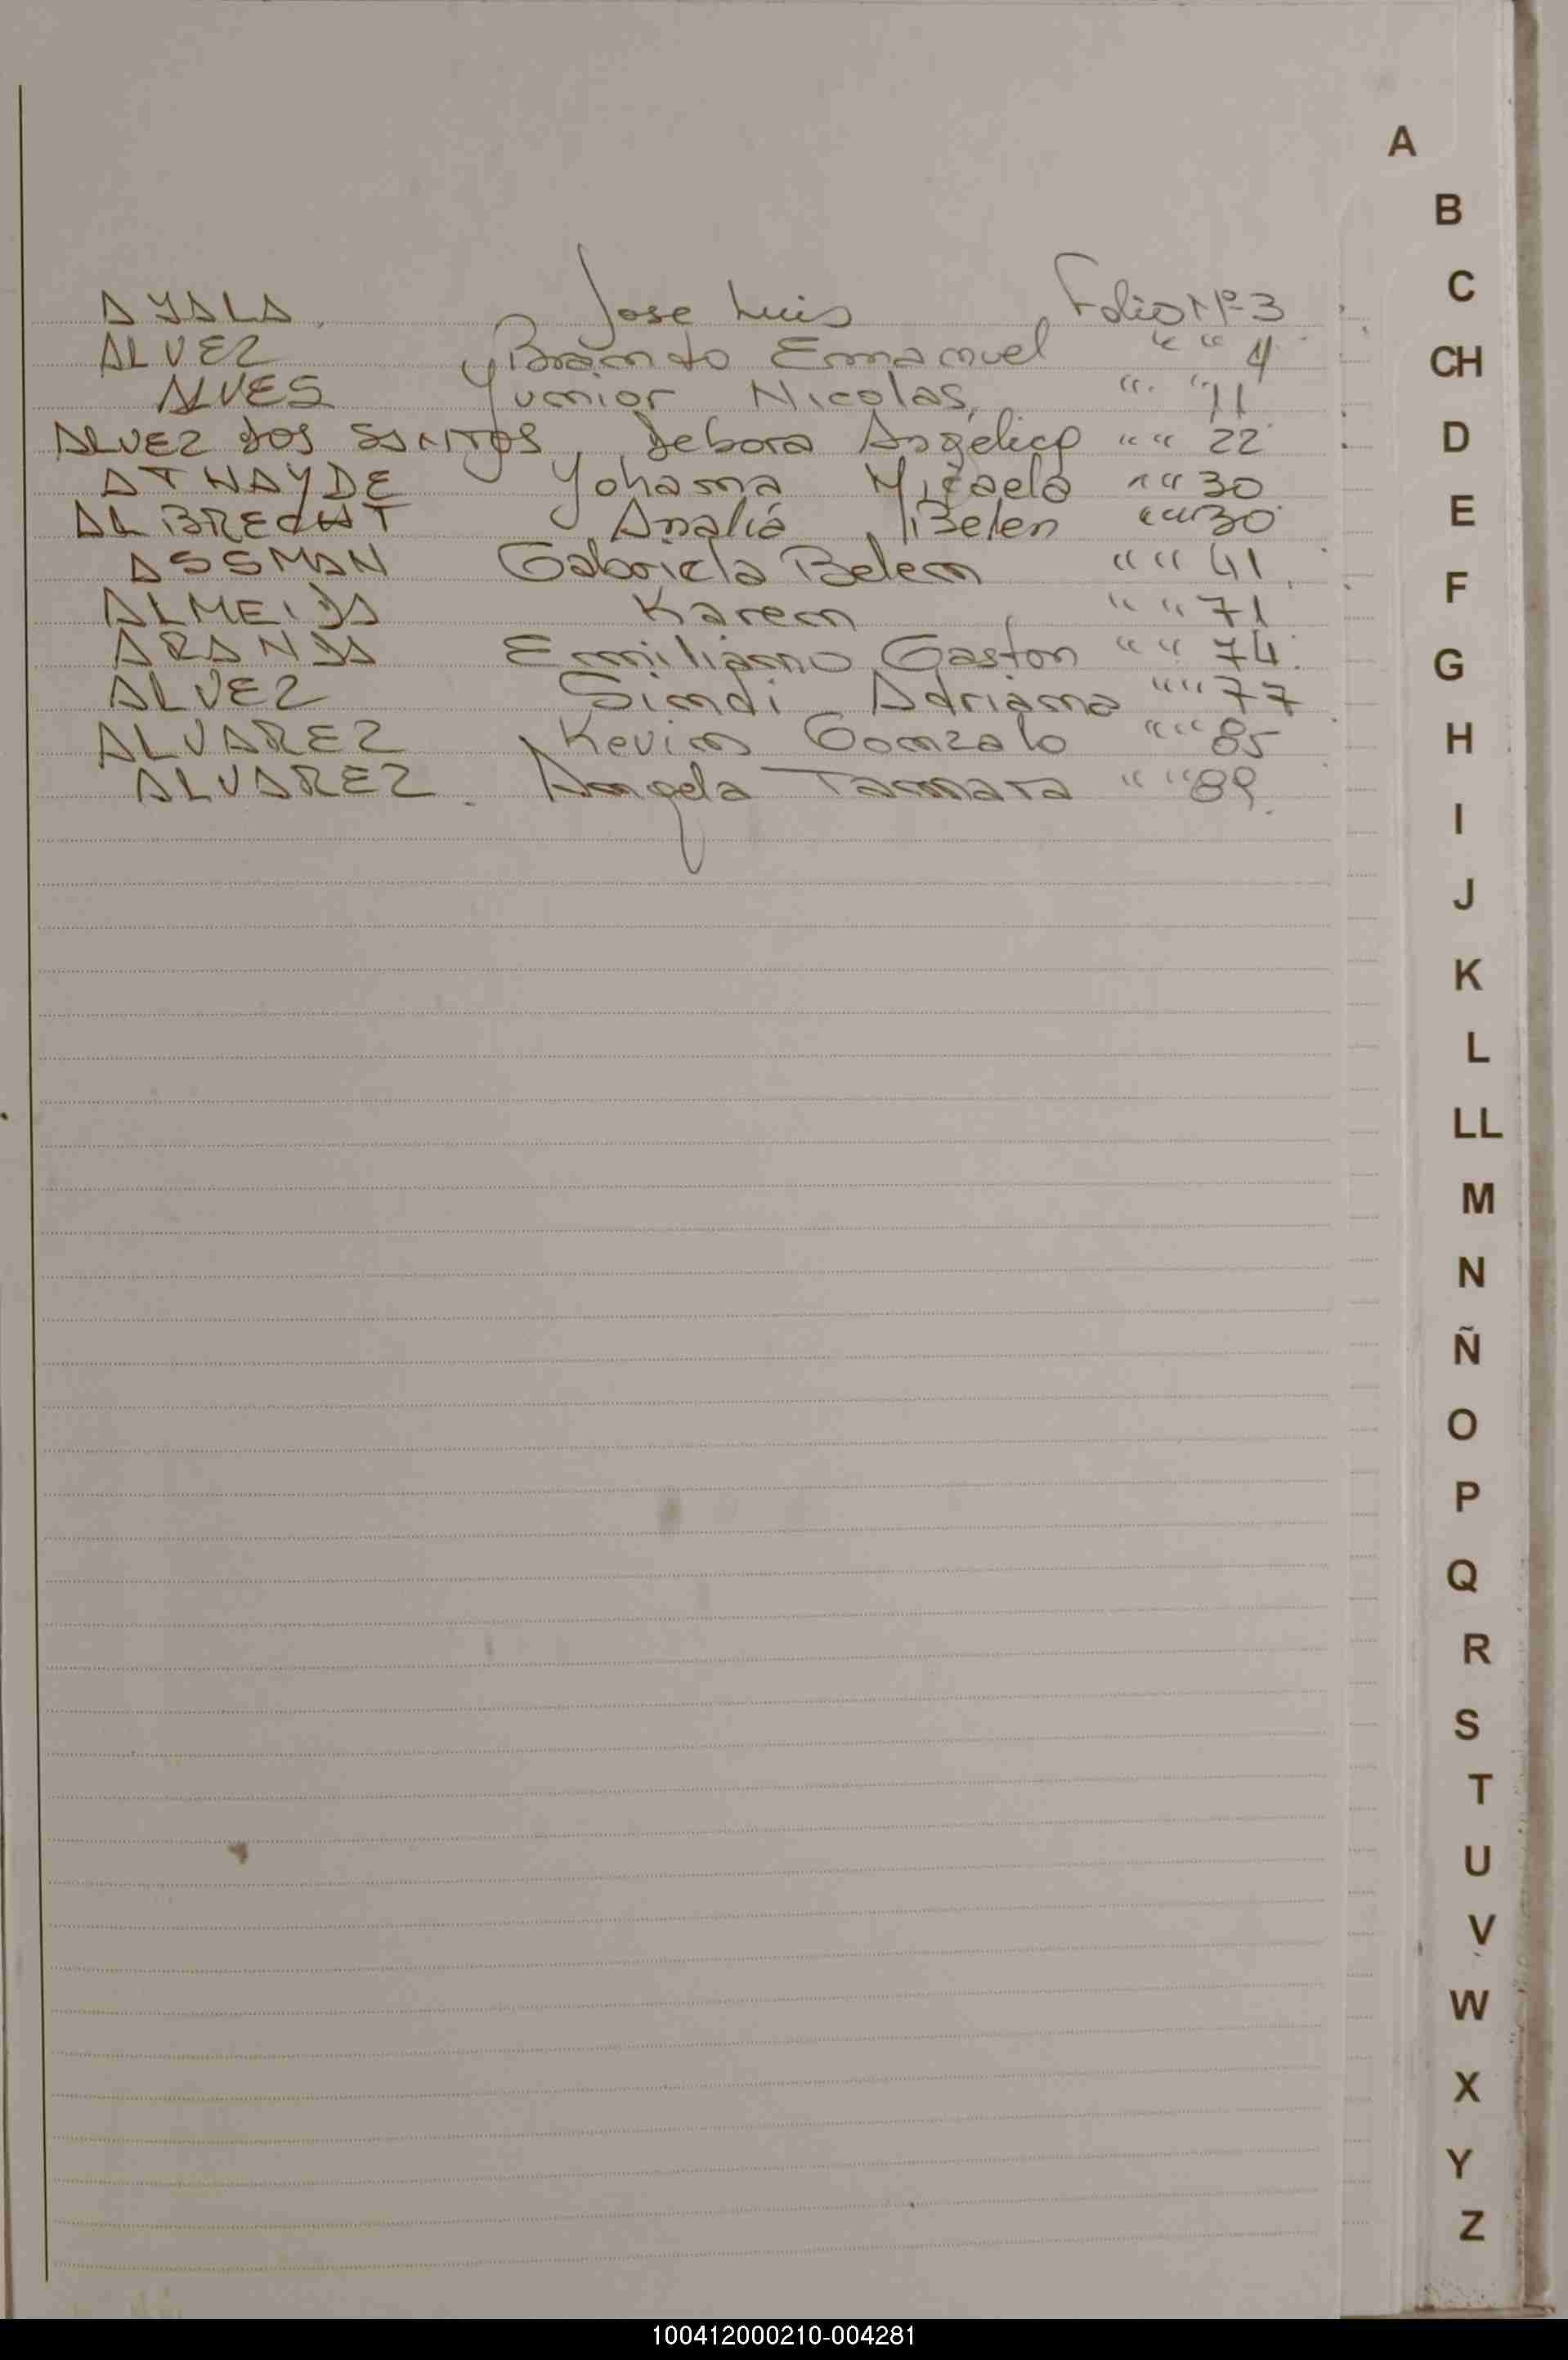 AYALA Jose Luis Folio Nº 3
ALVEZ Branto Emanuel " " 4
ALVES Yunior Nicolas " " 11
ALVEZ DOS SANTOS Debora Angélica " " 22
ATHAYDE Yohana Micaela " " 30
ALBRECHT Analiá Belen " " 30
ASSMAN Gabriela Belen " " 41
ALMEIDA Karen " " 71
ARANDA Emiliano Gaston " " 74
ALVEZ Sindi Adriana " " 77
ALVAREZ Kevin Gonzalo " " 85
ALVAREZ Angela Tamara " " 89
A
B
C
CH
D
E
F
G
H
I
J
K
L
LL
M
N
Ñ
O
P
Q
R
S
T
U
V
W
X
Y
Z
100412000210-004281